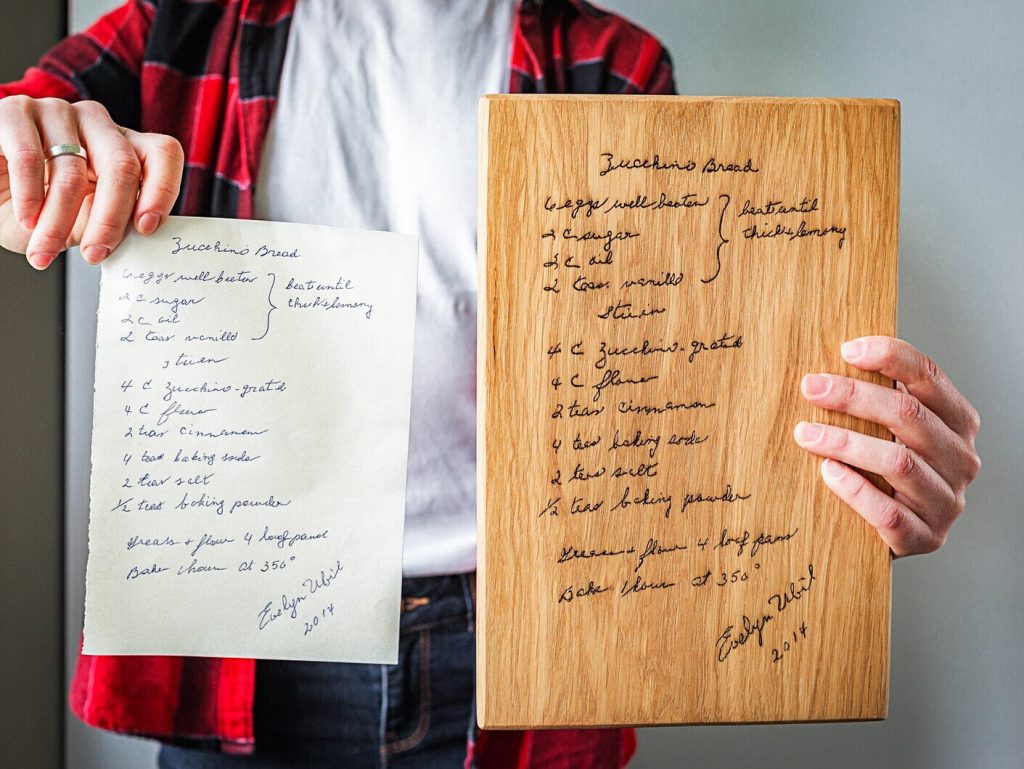 Zucchini Bread
6 eggs well beaten
2 C sugar
2 C oil
2 teas. vanilla
beat until
thick & lemony
stir in
4 C Zucchini-grated
4 C flour
2 teas cinnamon
4 teas baking soda
2 teas salt
1/2 teas baking powder
Grease + flour 4 loaf pans
Bake 1 hour at 350°
Evelyn
2014
Zucchini Bread
6 eggs well beaten
2 C sugar
2 C oil
2 teas. vanilla
beat until
thick & lemony
stir in
4 C Zucchini-grated
4 C flour
2 teas cinnamon
4 teas baking soda
2 teas salt
1/2 teas baking powder
Grease + flour 4 loaf pans
Bake 1 hour at 350°
Evelyn
2014